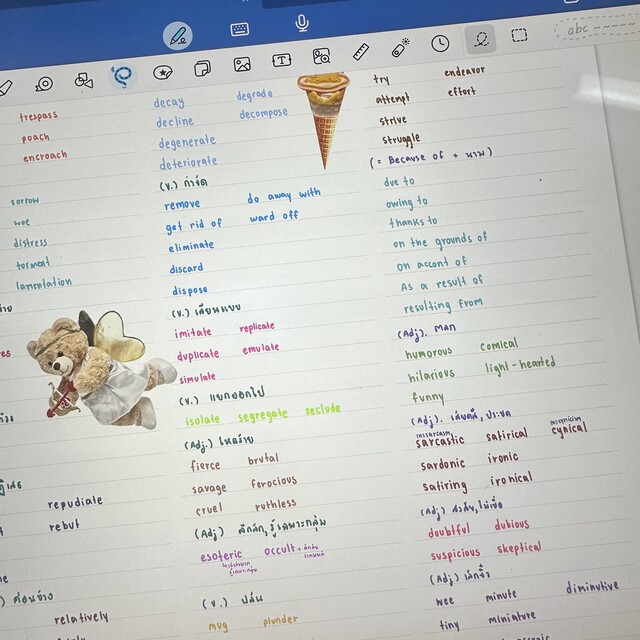 abc
trespass
poach
encroach
sorrow
woe
distress
torment
lamentation
repudiate
rebut
relatively
decay degrade
decline decompose
degenerate
deteriorate
(v.) กำจัด
remove do away with
get rid of ward off
eliminate
discard
dispose
(v.) เลียนแบบ
imitate replicate
duplicate emulate
simulate
(v.) แยกออกไป
isolate segregate seclude
(Adj.) โหดร้าย
fierce brutal
savage ferocious
cruel ruthless
(Adj) ลึกลับ, รู้เฉพาะกลุ่ม
esoteric occult
(v.) ปล้น
mug plunder
try endeavor
attempt effort
strive
struggle
(= Because of + นาม)
due to
owing to
thanks to
on the grounds of
on accont of
As a result of
resulting from
(Adj). ตลก
humorous comical
hilarious light-hearted
funny
(Adj). เสียดสี, ประชด
sarcastic satirical cynical
sardonic ironic
satiring ironical
(Adj) สงสัย, ไม่เชื่อ
doubtful dubious
suspicious skeptical
(Adj) เล็กจิ๋ว
wee minute diminutive
tiny miniature